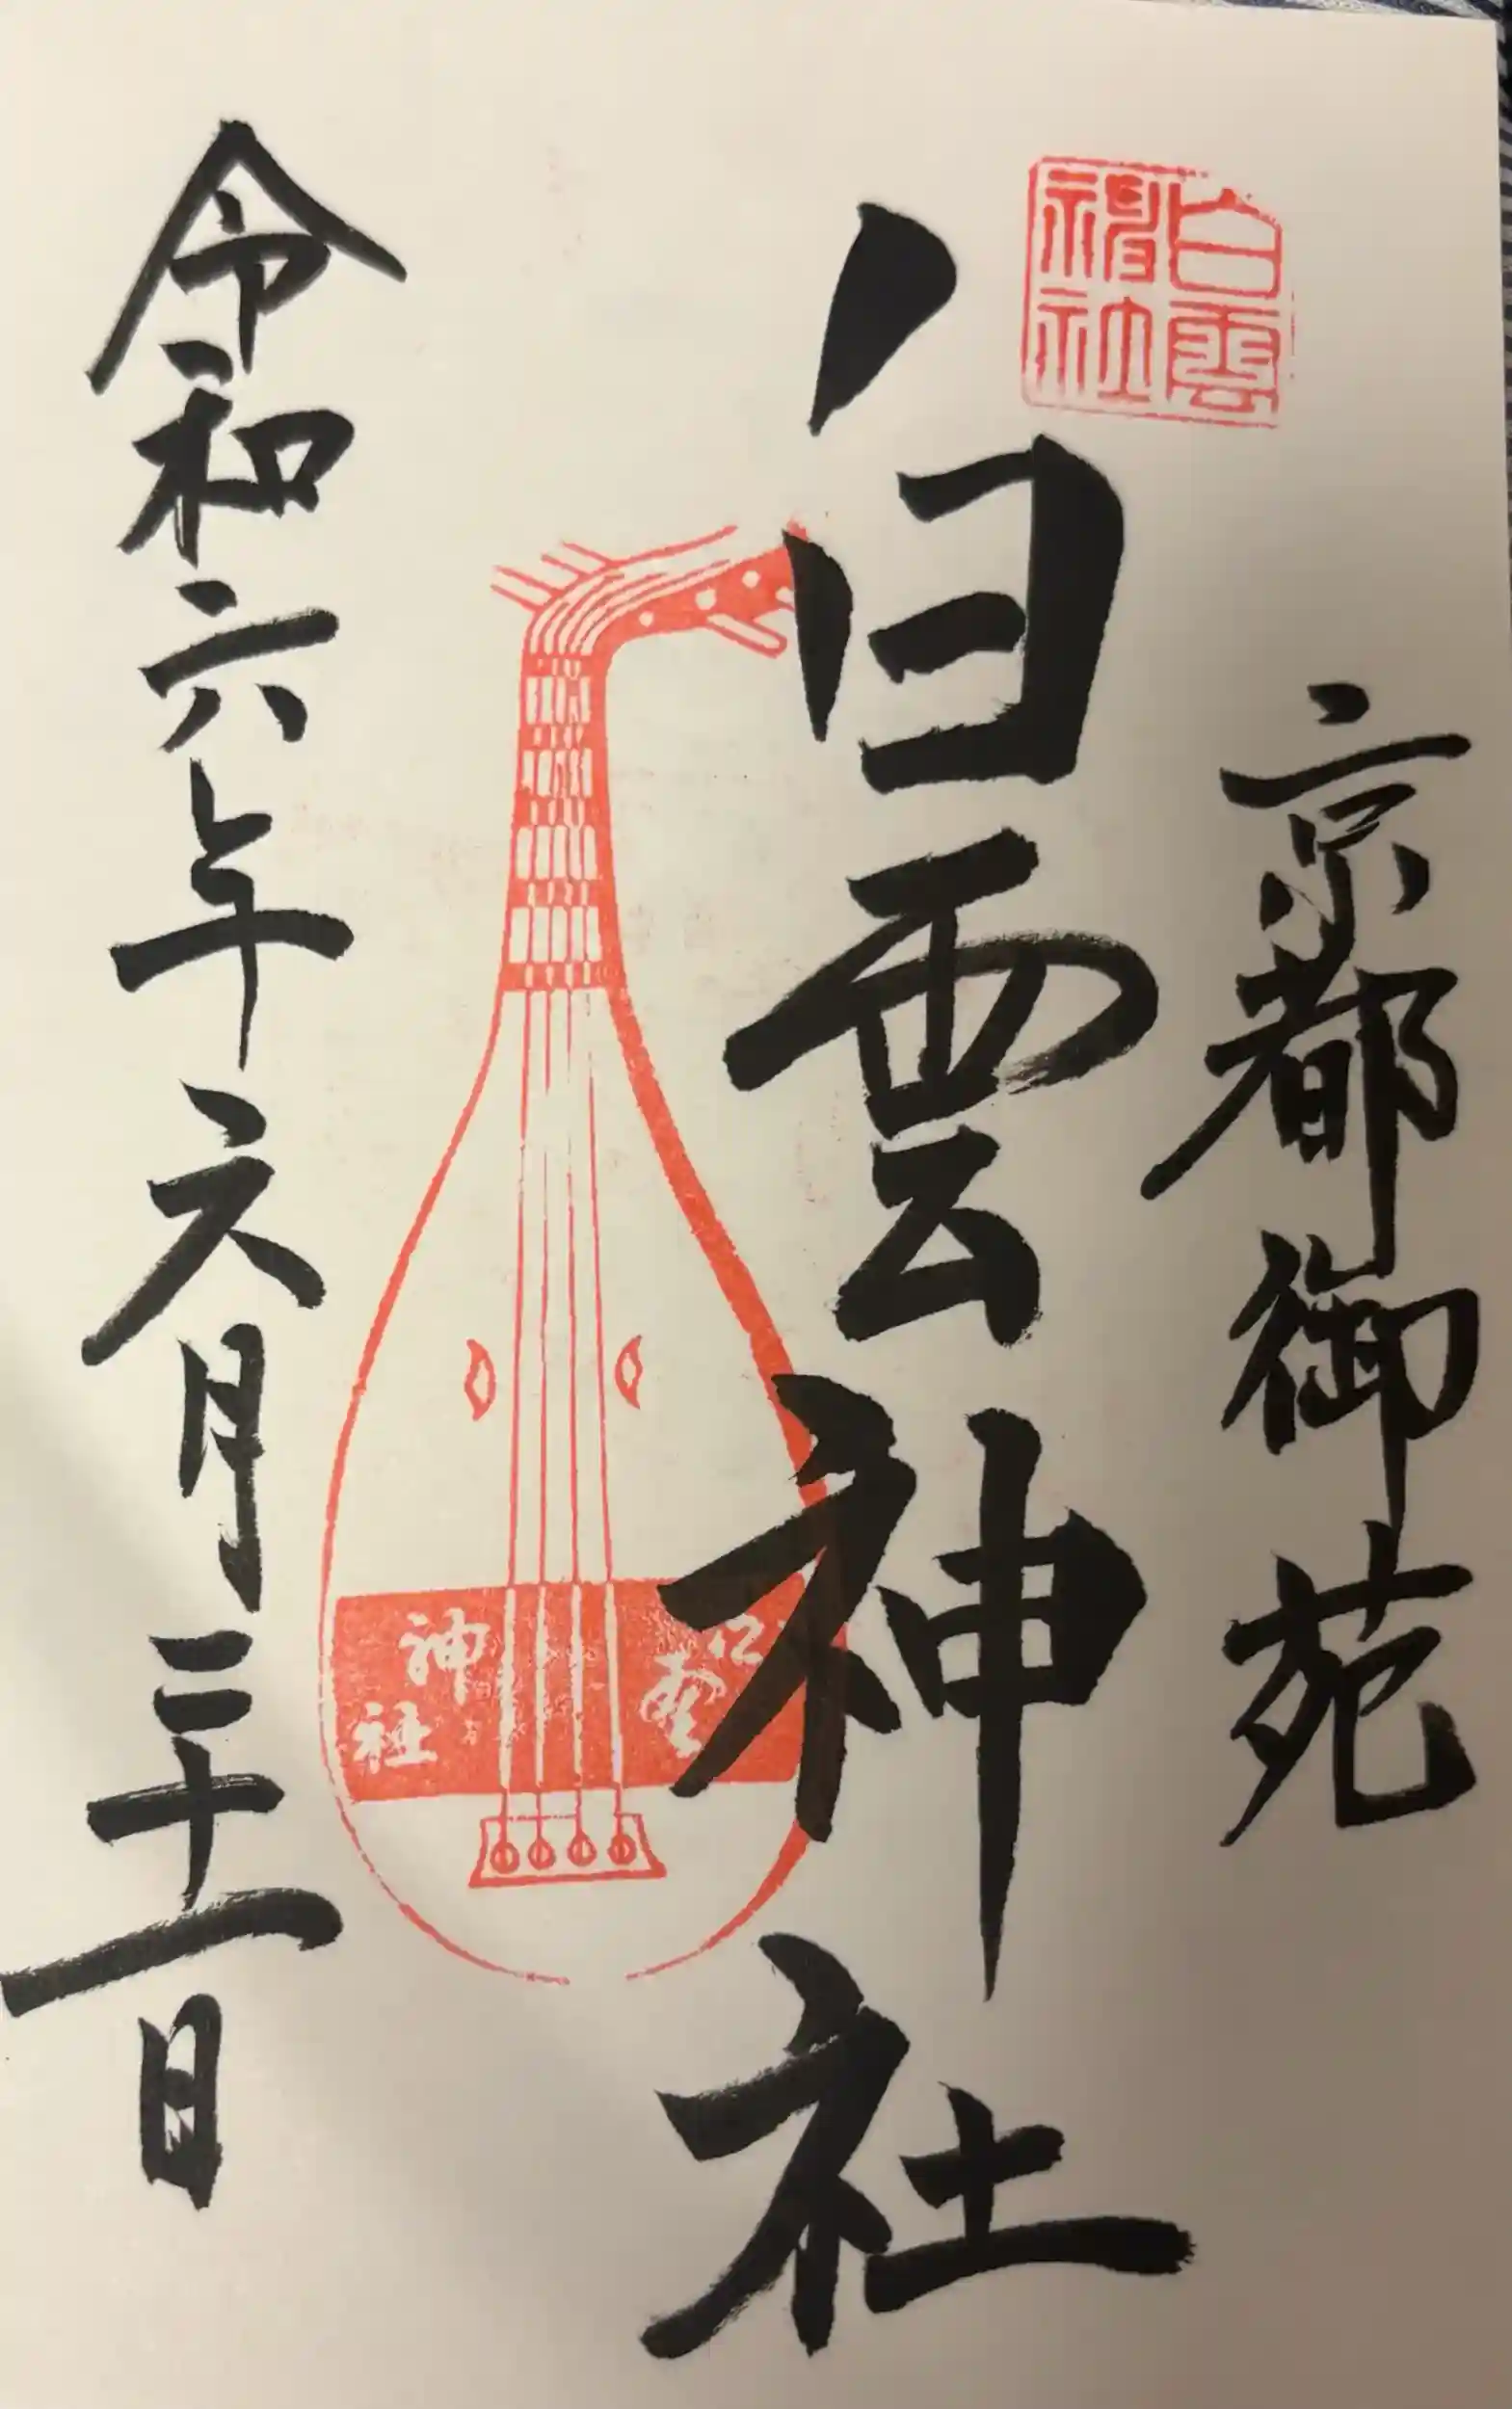 白雲神社
京都御苑
白雲神社
白雲神社
令和六年文月二十一日